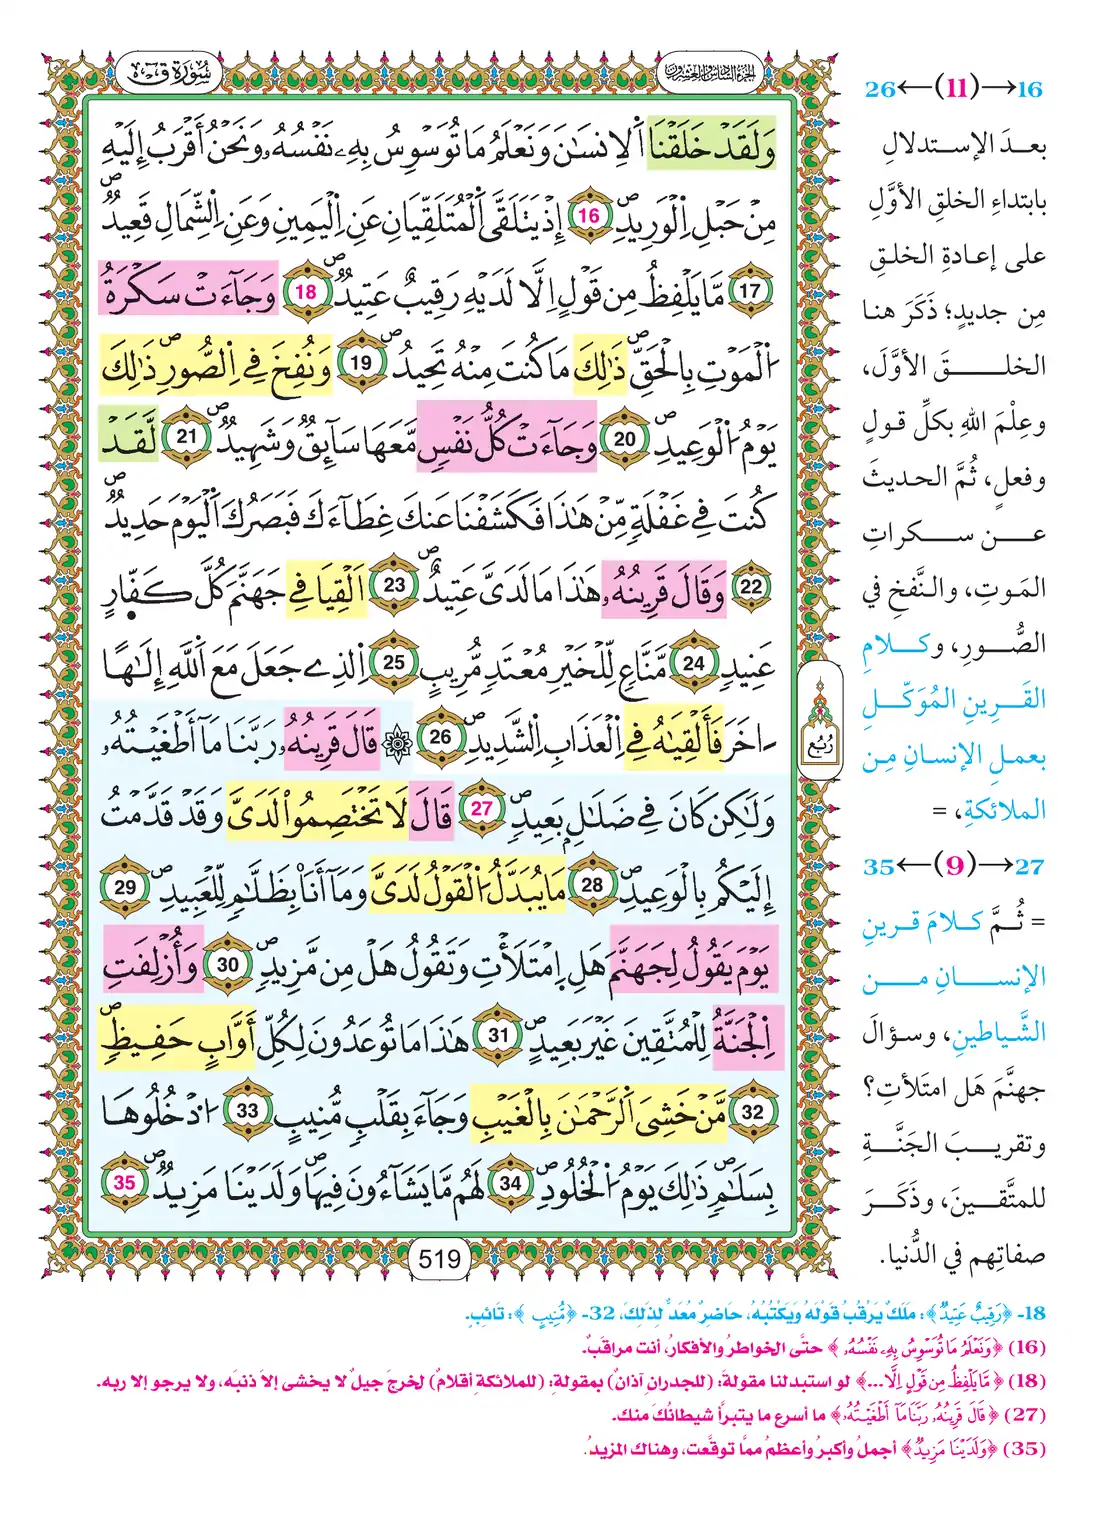 سُورَةُ قٓ
الجزء السادس والعشرون
وَلَقَدْ خَلَقْنَا اَ۬لِانسَٰنَ وَنَعْلَمُ مَا تُوَسْوِسُ بِهِۦ نَفْسُهُۥ وَنَحْنُ أَقْرَبُ إِلَيْهِ
مِنْ حَبْلِ اِ۬لْوَرِيدِۖ 16 إِذْ يَتَلَقَّى اَ۬لْمُتَلَقِّيَٰنِ عَنِ اِ۬لْيَمِينِ وَعَنِ اِ۬لشِّمَالِ قَعِيدٞۖ
17 مَّا يَلْفِظُ مِن قَوْلٍ اِلَّا لَدَيْهِ رَقِيبٌ عَتِيدٞۖ 18 وَجَآءَتْ سَكْرَةُ
اُ۬لْمَوْتِ بِالْحَقِّۖ ذَٰلِكَ مَا كُنتَ مِنْهُ تَحِيدُۖ 19 وَنُفِخَ فِے اِ۬لصُّورِۖ ذَٰلِكَ
يَوْمُ اُ۬لْوَعِيدِۖ 20 وَجَآءَتْ كُلُّ نَفْسٖ مَّعَهَا سَآئِقٞ وَشَهِيدٞۖ 21 لَّقَدْ
كُنتَ فِے غَفْلَةٖ مِّنْ هَٰذَا فَكَشَفْنَا عَنكَ غِطَآءَكَ فَبَصَرُكَ اَ۬لْيَوْمَ حَدِيدٞۖ
22 وَقَالَ قَرِينُهُۥ هَٰذَا مَا لَدَيَّ عَتِيدٌۖ 23 اَلْقِيَا فِے جَهَنَّمَ كُلَّ كَفّ۪ارٍ
عَنِيدٖ 24 مَّنَّاعٖ لِّلْخَيْرِ مُعْتَدٖ مُّرِيبٍ 25 اِ۬لذِے جَعَلَ مَعَ اَ۬للَّهِ إِلَٰهاً
اٰخَرَ فَأَلْقِيَٰهُ فِے اِ۬لْعَذَابِ اِ۬لشَّدِيدِۖ 26 ۞ قَالَ قَرِينُهُۥ رَبَّنَا مَآ أَطْغَيْتُهُۥ
وَلَٰكِن كَانَ فِے ضَلَٰلِۢ بَعِيدٖۖ 27 قَالَ لَا تَخْتَصِمُواْ لَدَيَّ وَقَدْ قَدَّمْتُ
إِلَيْكُم بِالْوَعِيدِۖ 28 مَا يُبَدَّلُ اُ۬لْقَوْلُ لَدَيَّ وَمَآ أَنَا۠ بِظَلَّٰمٖ لِّلْعَبِيدِۖ 29
يَوْمَ يَقُولُ لِجَهَنَّمَ هَلِ اِ۪مْتَلَأْتِ وَتَقُولُ هَلْ مِن مَّزِيدٖۖ 30 وَأُزْلِفَتِ
اِ۬لْجَنَّةُ لِلْمُتَّقِينَ غَيْرَ بَعِيدٍۖ 31 هَٰذَا مَا تُوعَدُونَ لِكُلِّ أَوَّابٍ حَفِيظٖۖ
32 مَّنْ خَشِيَ اَ۬لرَّحْمَٰنَ بِالْغَيْبِ وَجَآءَ بِقَلْبٖ مُّنِيبٍ 33 اُ۟دْخُلُوهَا
بِسَلَٰمٖۖ ذَٰلِكَ يَوْمُ اُ۬لْخُلُودِۖ 34 لَهُم مَّا يَشَآءُونَ فِيهَاۖ وَلَدَيْنَا مَزِيدٞۖ 35
رُبُع
519
26←(11)→16
بعدَ الإستدلالِ
بابتداءِ الخلقِ الأوَّلِ
على إعادةِ الخلقِ
مِن جديدٍ؛ ذَكَرَ هنا
الخلقَ الأوَّلَ،
وعِلْمَ اللهِ بكلِّ قولٍ
وفعلٍ، ثُمَّ الحديثَ
عن سكراتِ
المَوتِ، والنَّفخِ في
الصُّورِ، وكلامِ
القَرِينِ المُوَكّلِ
بعملِ الإنسانِ مِن
الملائكةِ، =
35←(9)→27
= ثُمَّ كلامَ قرينِ
الإنسانِ من
الشَّياطينِ، وسؤالَ
جهنَّمَ هَل امتَلأتِ؟
وتقريبَ الجَنَّةِ
للمتَّقينَ، وذَكَرَ
صفاتِهم في الدُّنيا.
18- ﴿رَقِيبٌ عَتِيدٞ﴾: مَلَكٌ يَرْقُبُ قَوْلَهُ وَيَكْتُبُهُ، حَاضِرٌ مُعَدٌّ لِذَلِكَ، 32- ﴿مُّنِيبٍ﴾: تَائِبٍ.
(16) ﴿وَنَعْلَمُ مَا تُوَسْوِسُ بِهِۦ نَفْسُهُۥ﴾ حتَّى الخواطرُ والأفكارُ، أنت مراقَبٌ.
(18) ﴿مَّا يَلْفِظُ مِن قَوْلٍ اِلَّا...﴾ لو استبدلنا مقولةَ: (للجدرانِ آذانٌ) بمقولةِ: (للملائكةِ أقلامٌ) لخرجَ جيلٌ لا يخشى إلا ذنبَه، ولا يرجو إلا ربه.
(27) ﴿قَالَ قَرِينُهُۥ رَبَّنَا مَآ أَطْغَيْتُهُۥ﴾ ما أسرع ما يتبرأ شيطانُكَ منك.
(35) ﴿وَلَدَيْنَا مَزِيدٞ﴾ أجملُ وأكبرُ وأعظمُ ممَّا توقَّعت، وهناك المزيدُ.